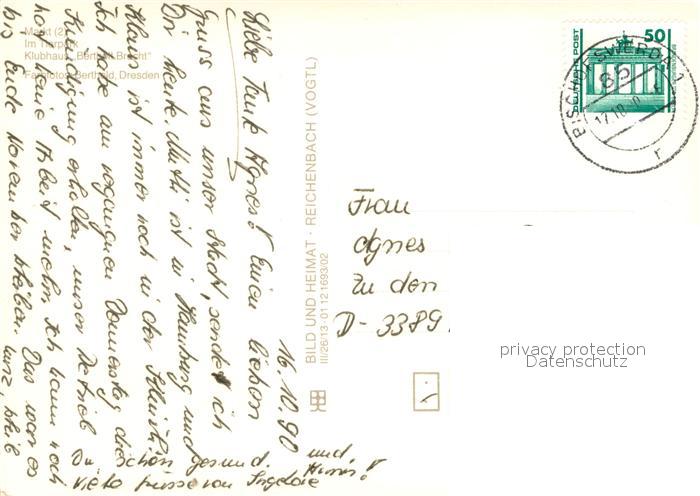 Markt (2)
Im Tierpark
Klubhaus „Berthold Brecht"
Farbfotos: Berthold, Dresden
BILD UND HEIMAT · REICHENBACH (VOGTL)
III/26/13 · 01 12 1693/02
DEUTSCHE POST
50
BISCHOFSWERDA 1
85
17.10.90
r
16.10.90
Liebe Tante Agnes! Einen lieben
Gruss aus unser Stadt, sendet ich
Dir heute. Mutti ist in Hamburg und
Klaus ist immer noch in der Schweiz.
Ich habe am vergangenen Donnerstag die
Kündigung erhalten, unser Betrieb
hat keine Arbeit mehr. Ich kann noch
bis Ende November bleiben. Das war es
kurz, bleib
Du schön gesund. und
Viele Grüsse von Ingeloie
Frau
Agnes
Zu den
D-3389
privacy protection
Datenschutz